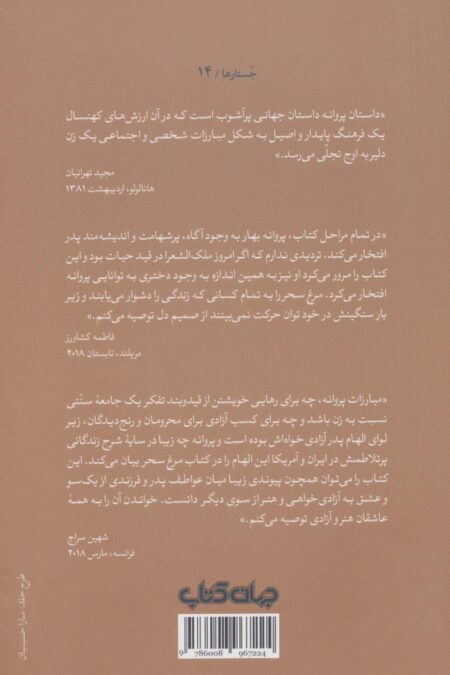 جُستارها / ۱۴
«داستان پروانه داستان جهانی پرآشوب است که در آن ارزش‌های کهنسال
یک فرهنگ پایدار و اصیل به شکل مبارزات شخصی و اجتماعی یک زن
دلیر به اوج تجلّی می‌رسد.»
مجید تهرانیان
هانالولو، اردیبهشت ۱۳۸۱
«در تمام مراحل کتاب، پروانه بهار به وجود آگاه، پرشهامت و اندیشه‌مند پدر
افتخار می‌کند. تردیدی ندارم که اگر امروز ملک‌الشعرا در قید حیات بود و این
کتاب را مرور می‌کرد او نیز به همین اندازه به وجود دختری به توانایی پروانه
افتخار می‌کرد. مرغ سحر را به تمام کسانی که زندگی را دشوار می‌یابند و زیر
بار سنگینش در خود توان حرکت نمی‌بینند از صمیم دل توصیه می‌کنم.»
فاطمه کشاورز
مریلند، تابستان ۲۰۱۸
«مبارزات پروانه، چه برای رهایی خویشتن از قیدوبند تفکر یک جامعهٔ سنّتی
نسبت به زن باشد و چه برای کسب آزادی برای محرومان و رنج‌دیدگان، زیر
لوای الهام پدر آزادی خواه‌اش بوده است و پروانه چه زیبا در سایهٔ شرح زندگانی
پرتلاطمش در ایران و آمریکا این الهام را در کتاب مرغ سحر بیان می‌کند. این
کتاب را می‌توان همچون پیوندی زیبا میان عواطف پدر و فرزندی از یک‌سو
و عشق به آزادی‌خواهی و هنر از سوی دیگر دانست. خواندن آن را به همهٔ
عاشقان هنر و آزادی توصیه می‌کنم.»
شهین سراج
فرانسه، مارس ۲۰۱۸
جهان کتاب
9 786008 967224
طرح جلد: سارا حسینیان